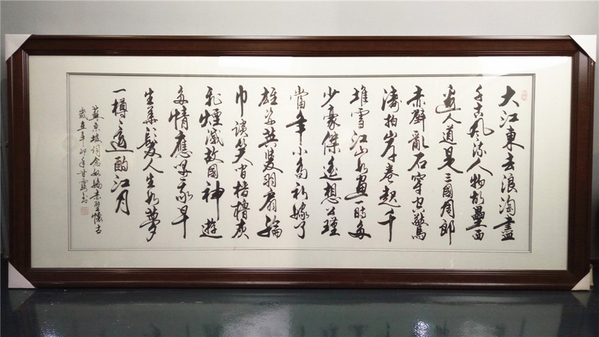 大江東去浪淘盡
千古風流人物故壘西
邊人道是三國周郎
赤壁亂石穿空驚
濤拍岸卷起千
堆雪江山如畫一時多
少豪傑遙想公瑾
當年小喬初嫁了
雄姿英發羽扇綸
巾談笑間檣櫓灰
飛煙滅故國神遊
多情應笑我早
生華髮人生如夢
一樽還酹江月
蘇東坡詞念奴嬌赤壁懷古